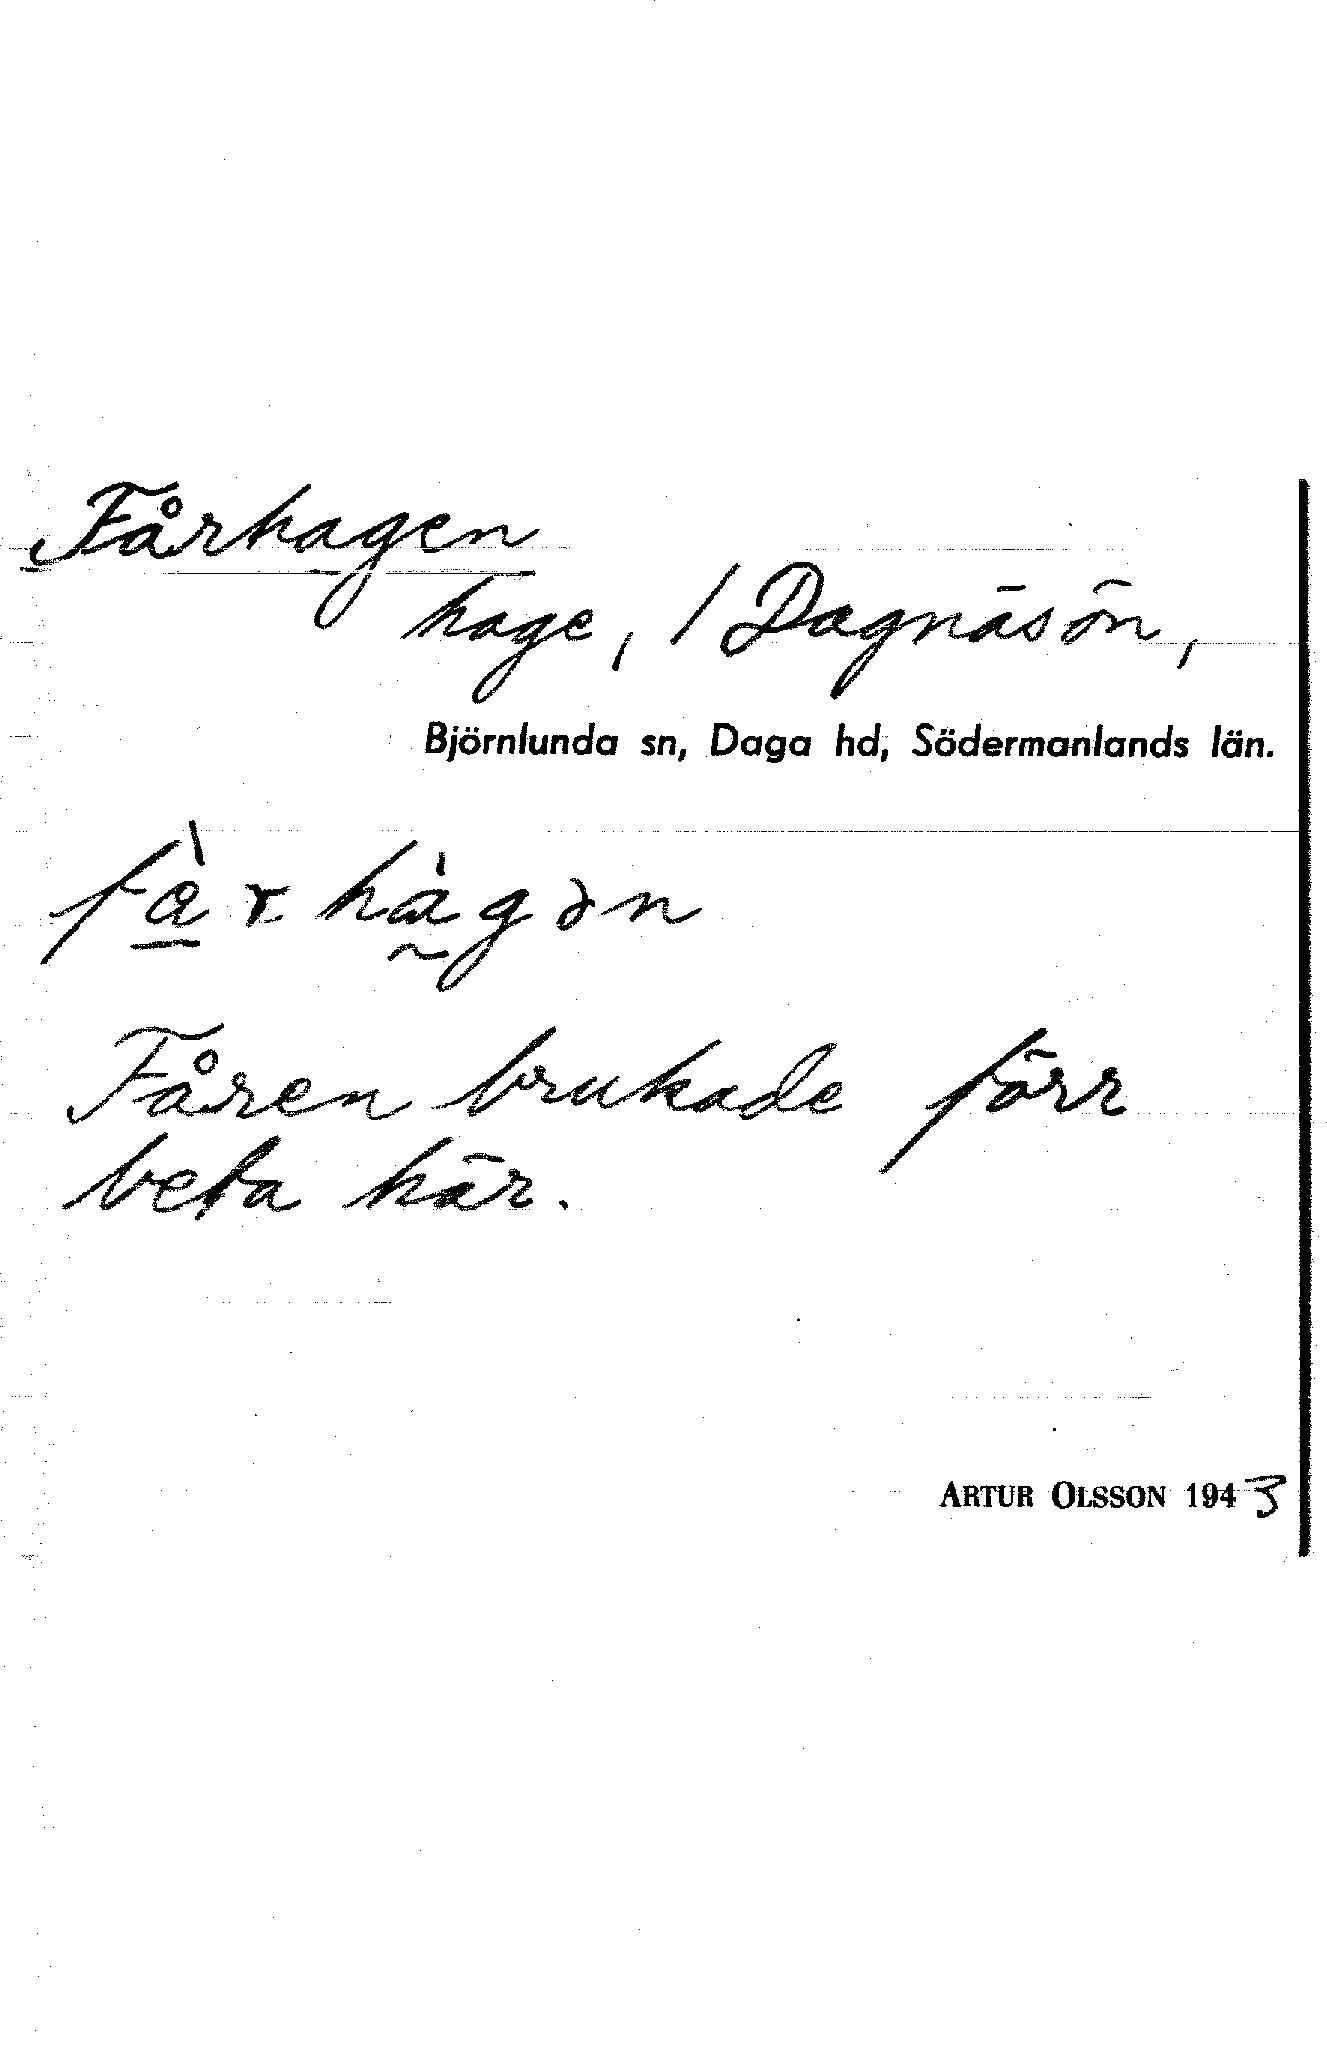 Fårhagen
hage, / Dagnäsön,
Björnlunda sn, Daga hd, Södermanlands län.
fàrhàgən
Fåren brukade förr
beta här.
ARTUR OLSSON 1943